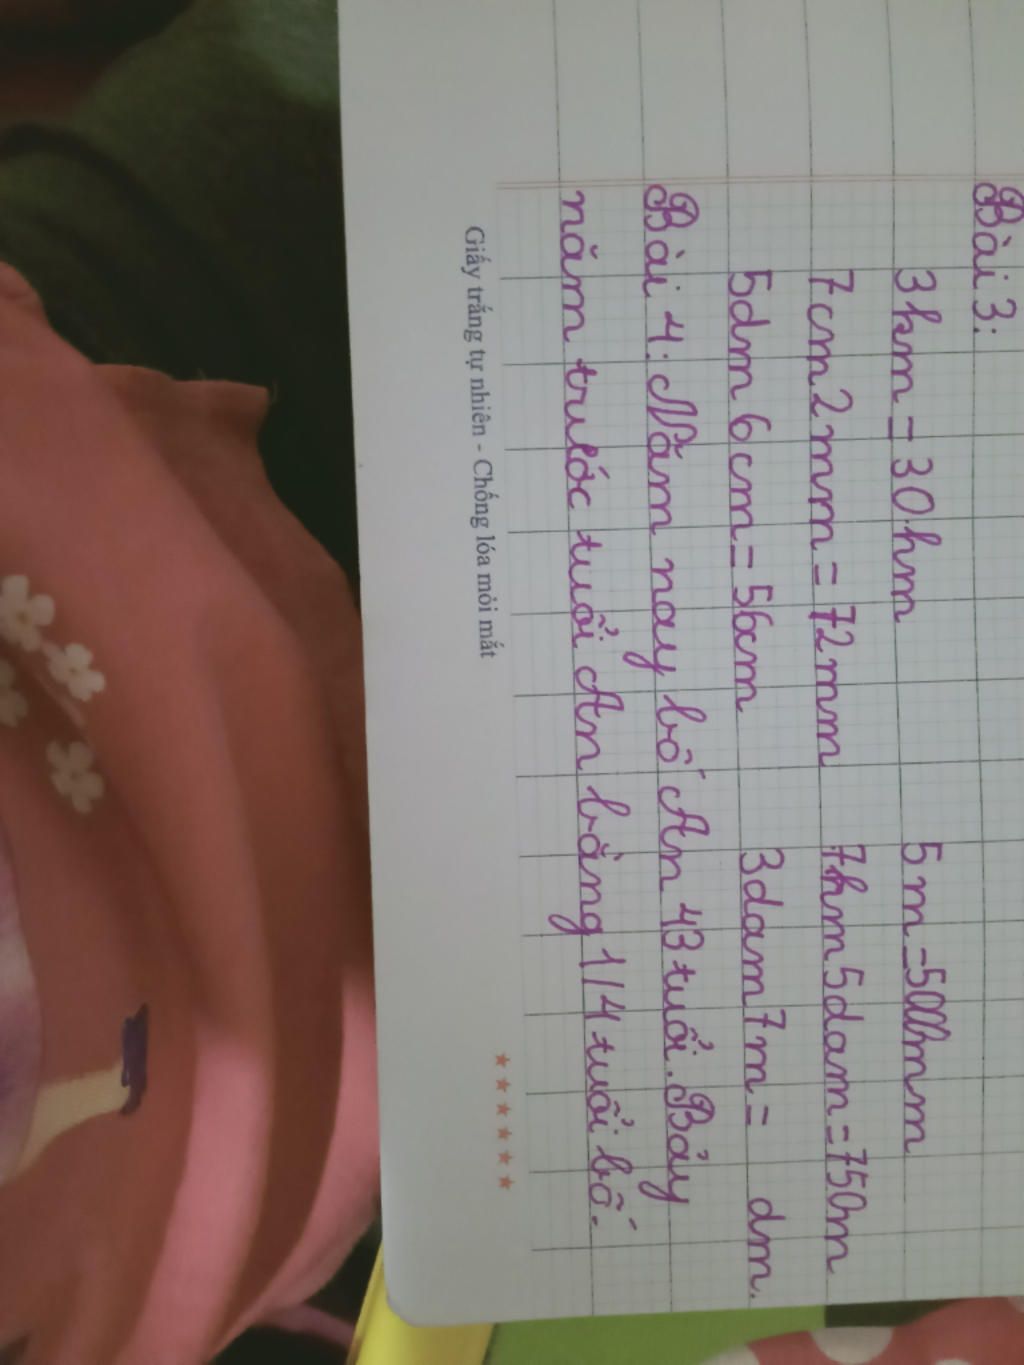 Bài 3:
3km = 30hm 5m = 5000mm
7cm2mm = 72mm 7hm5dam = 750m
5dm6cm = 56cm 3dam7m = dm.
Bài 4: Năm nay bố An 43 tuổi. Bảy
năm trước tuổi An bằng 1/4 tuổi bố.
Giấy trắng tự nhiên - Chống lóa mỏi mắt